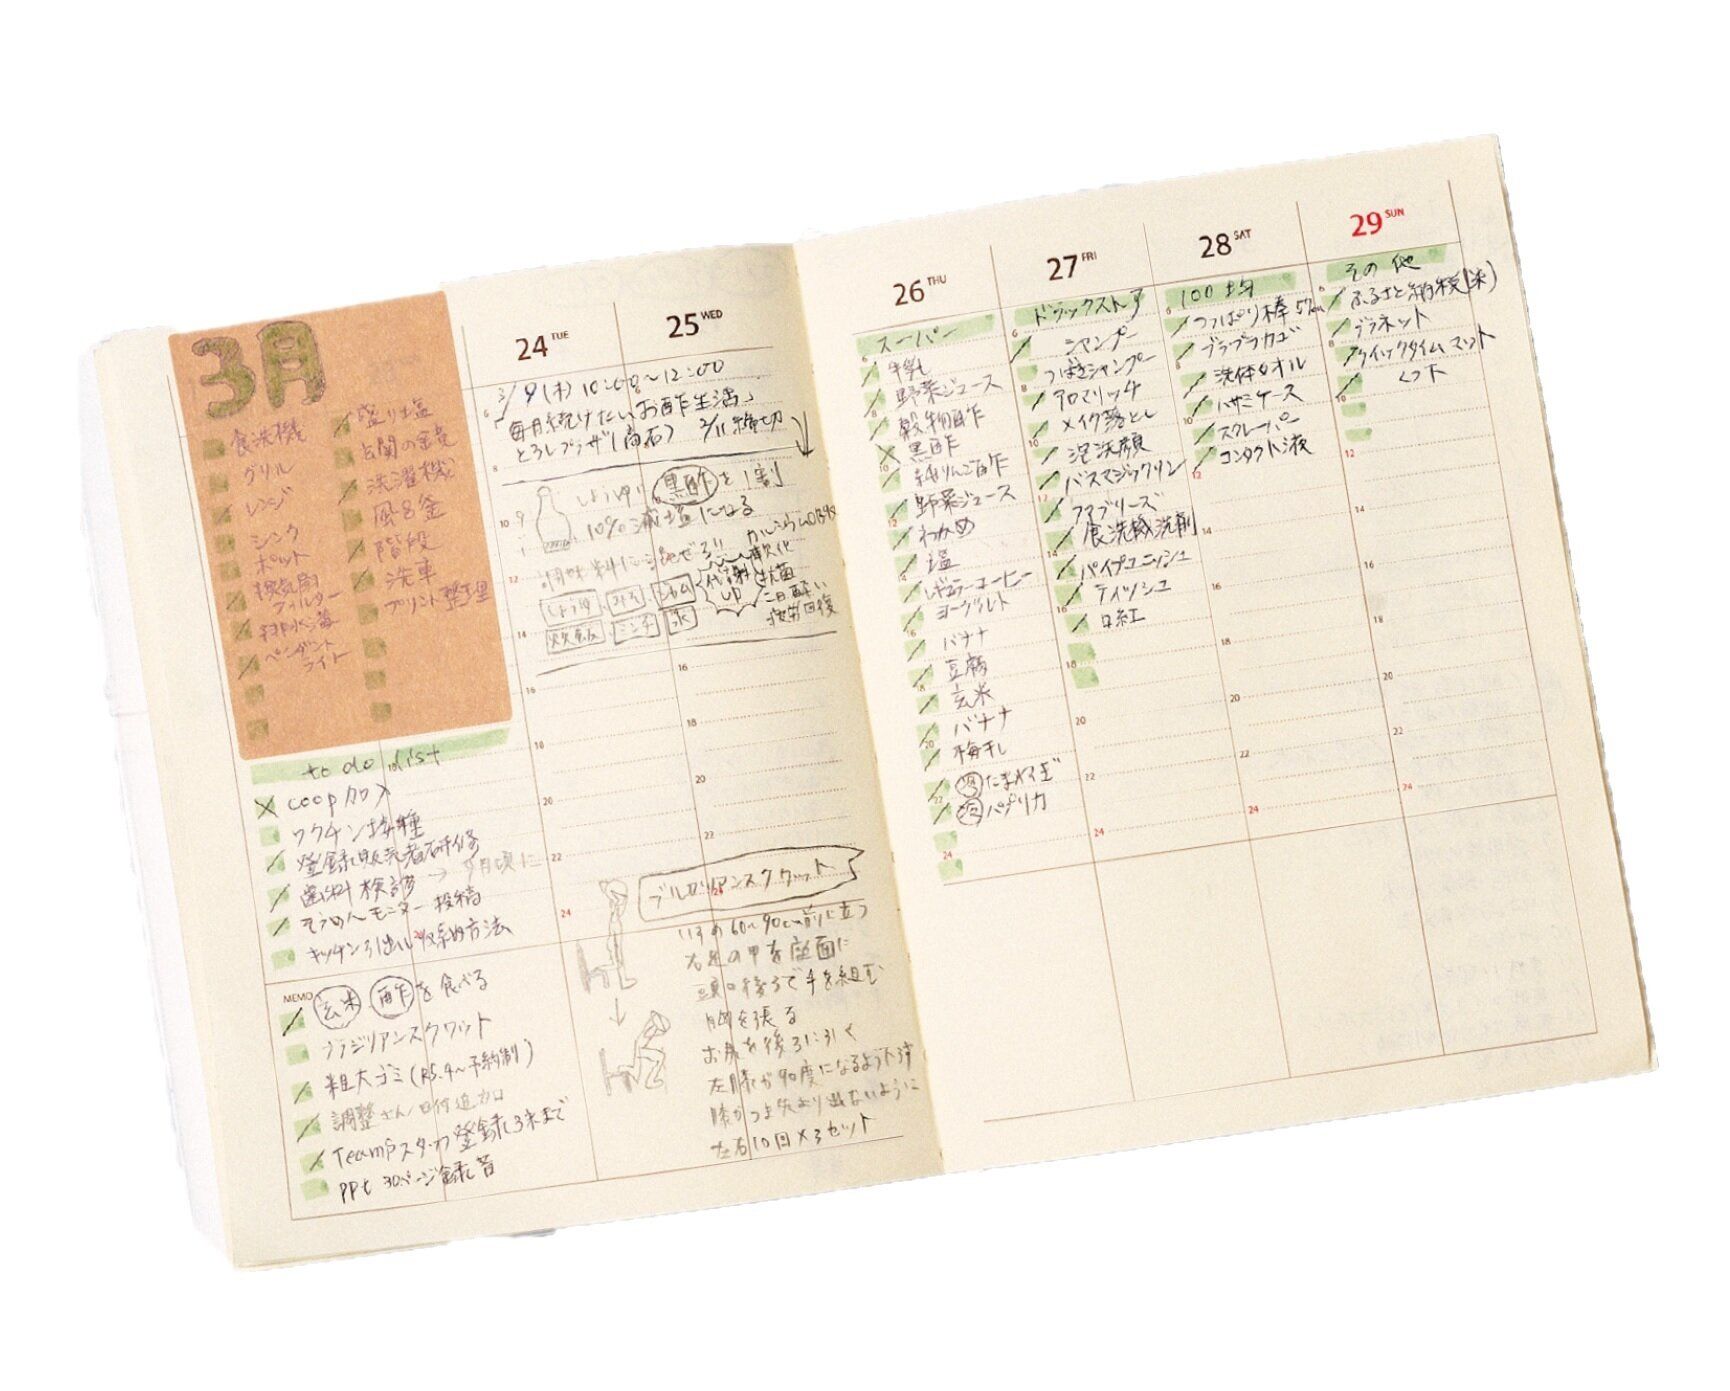 3月
食洗機
グリル
レンジ
シンク
ポット
換気扇
フィルター
排水溝
ペンダント
ライト
盛り塩
玄関の鏡
洗濯機
風呂釜
階段
洗車
プリント整理
to do list
coop加入
ワクチン接種
登録販売者研修
歯科検診→9月頃に
そうめんモニター投稿
キッチン引出し収納方法
MEMO
玄米 酢を食べる
ブラジリアンスクワット
粗大ゴミ(R5.4〜予約制)
調整さん日付追加
Teamsスタッフ登録3末まで
ppt 30ページ録音
24 TUE
25 WED
3/9(木) 10:00〜12:00
毎月続けたいお酢生活
とろしプラザ(高石) 2/11締切
しょうゆ 黒酢を1割
10%減塩になる
調味料に混ぜろ!!
しょうゆ みそ
炊飯 水
代謝
UP
カルシウム吸収
軟化
抗菌
二日酔い
疲労回復
ブルガリアンスクワット
いすの60〜90cm前に立つ
右足の甲を座面に
頭の後ろで手を組む
胸を張る
お尻を後ろに引く
左膝が90度になるよう下ろす
膝がつま先より出ないように
左右10回×3セット
26 THU
スーパー
牛乳
野菜ジュース
穀物酢
黒酢
純りんご酢
野菜ジュース
わかめ
塩
レギュラーコーヒー
ヨーグルト
バナナ
豆腐
玄米
バナナ
梅干し
たまねぎ
パプリカ
27 FRI
ドラックストア
シャンプー
つばきシャンプー
アロマリッチ
メイク落とし
泡洗顔
バスマジックリン
ファブリーズ
食洗機洗剤
パイプユニッシュ
ティッシュ
口紅
28 SAT
100均
つっぱり棒57cm
プラプラカゴ
洗体タオル
ハサミケース
スクレーパー
コンタクト液
29 SUN
その他
ふるさと納税(米)
プラネット
クイックタイムマット
くつ下